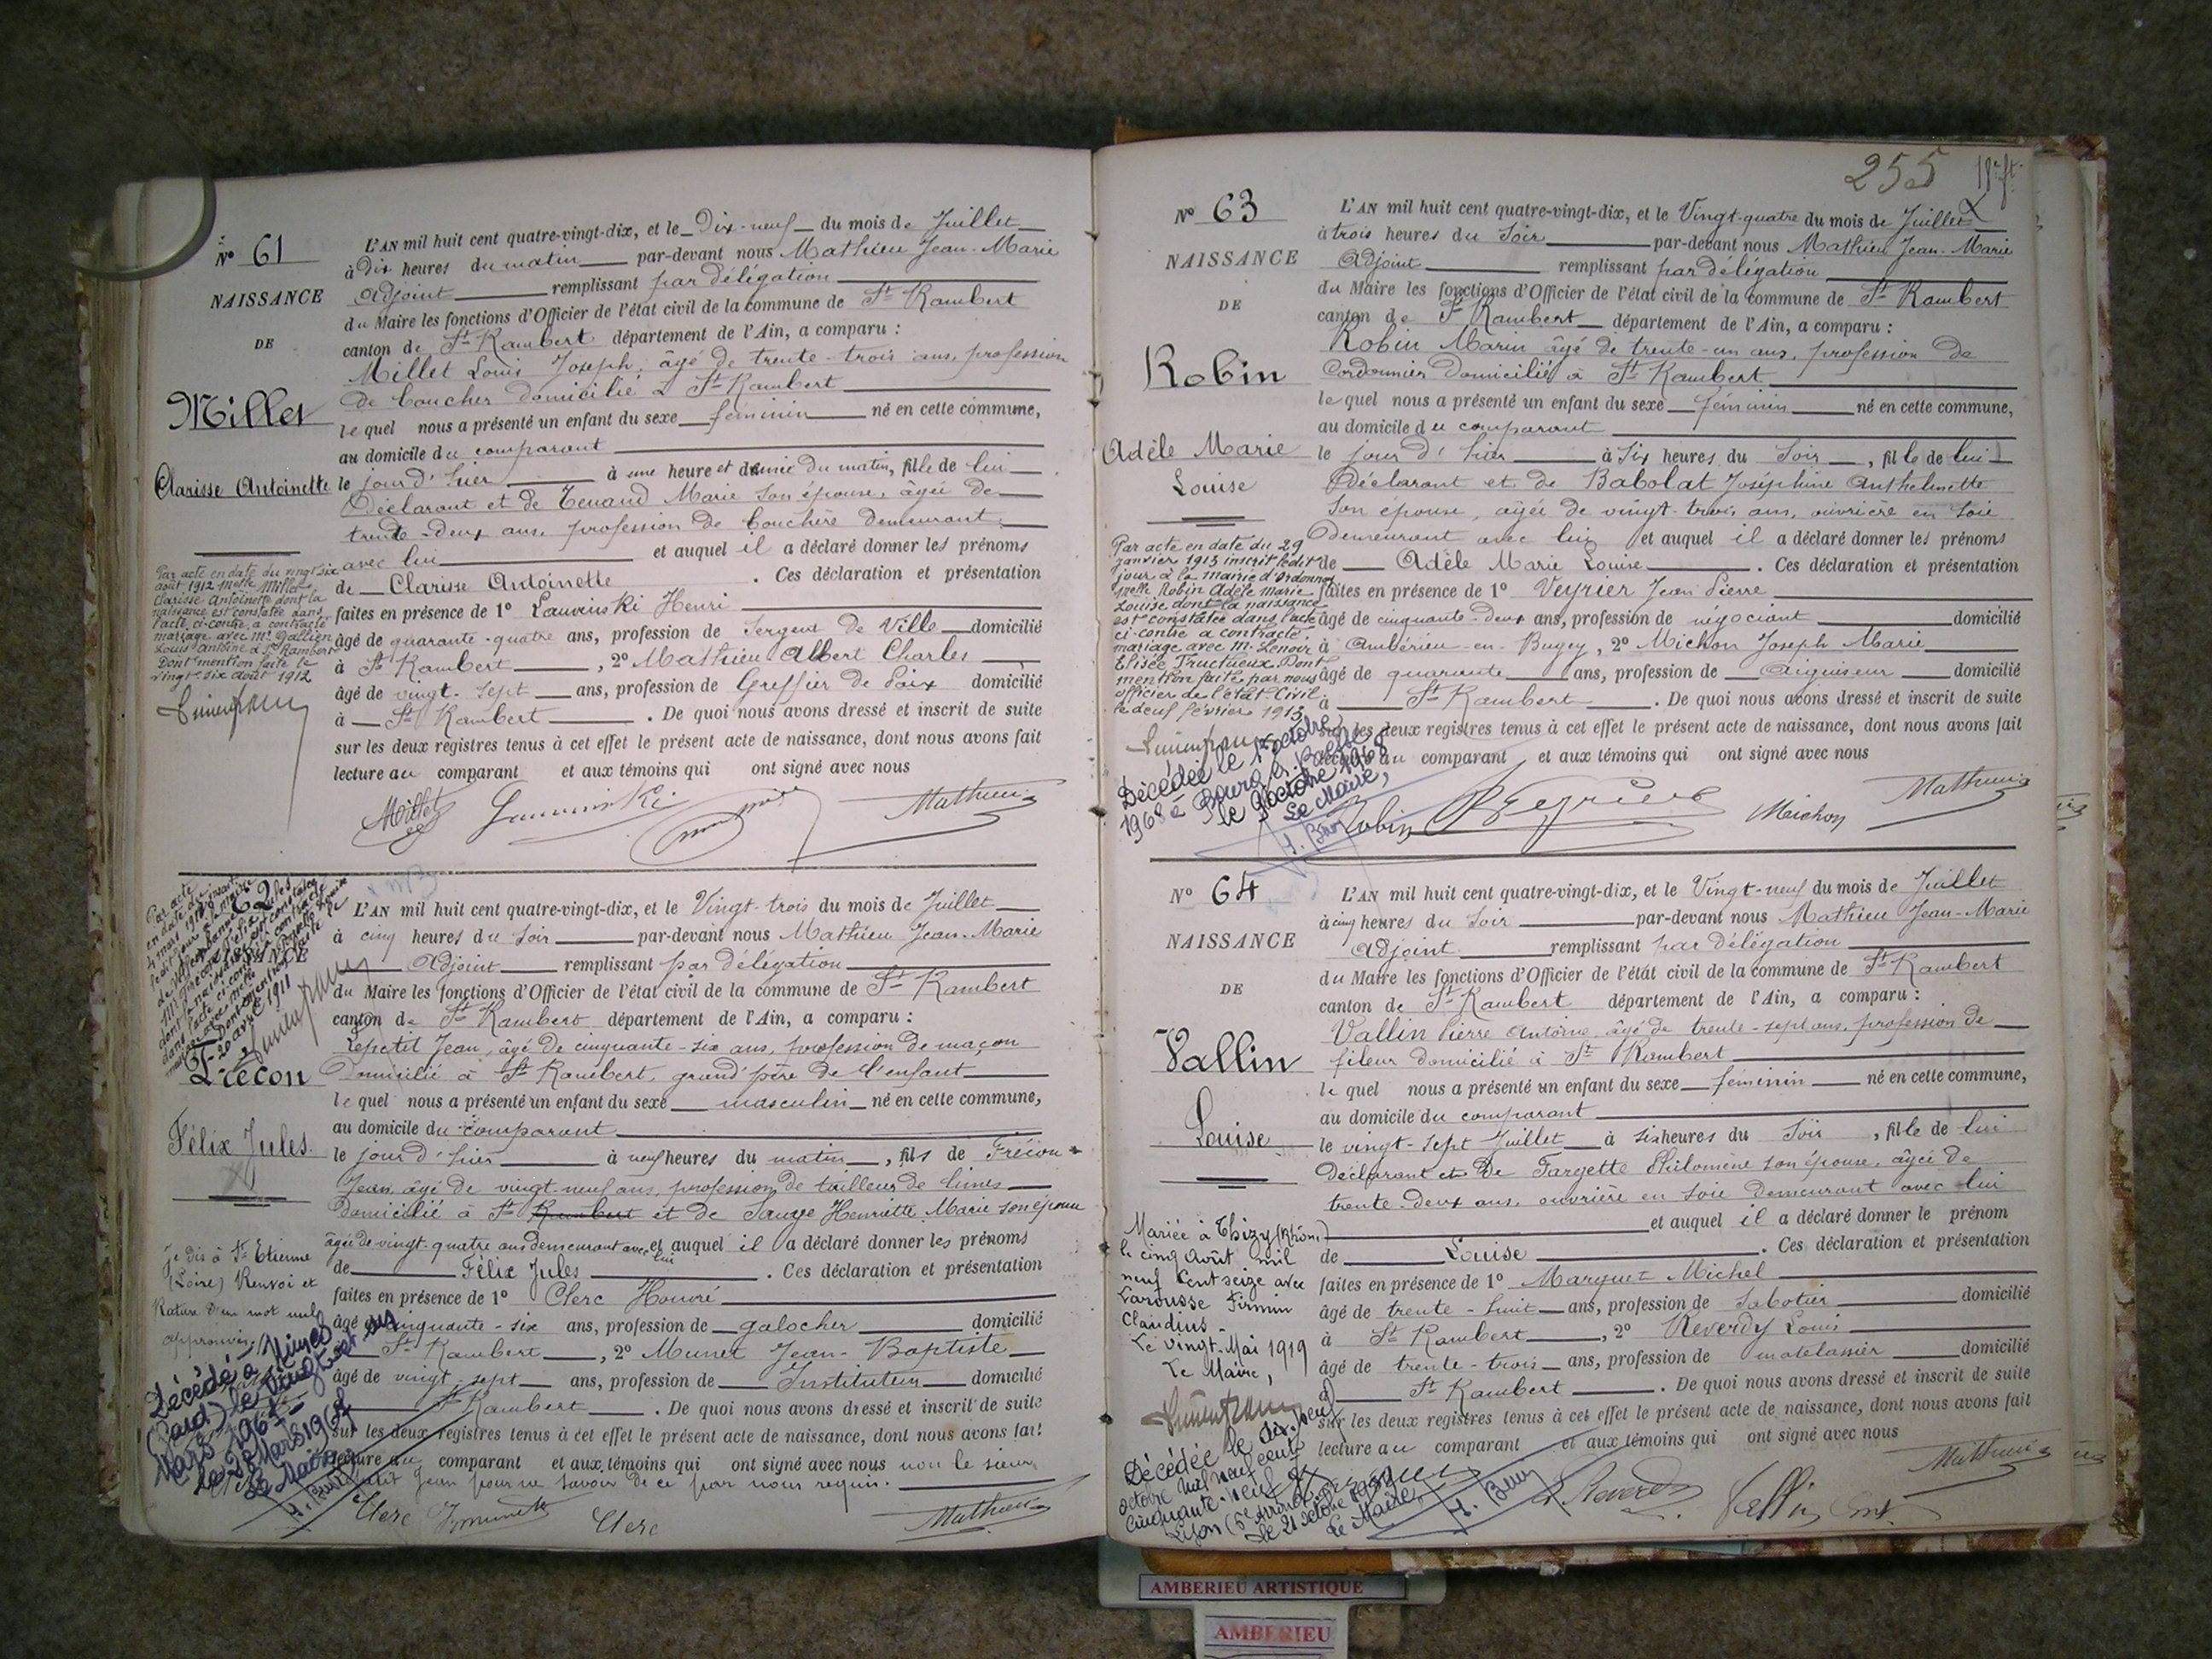 N° 61
NAISSANCE
DE
Millet
Clarisse Antoinette
L'AN mil huit cent quatre-vingt-dix, et le Dix-neuf du mois de Juillet
à Dix heures du matin par-devant nous Mathieu Jean-Marie
Adjoint remplissant par délégation
du Maire les fonctions d'Officier de l'état civil de la commune de St Rambert
canton de St Rambert département de l'Ain, a comparu :
Millet Louis Joseph, âgé de trente-trois ans, profession
de boucher domicilié à St Rambert
lequel nous a présenté un enfant du sexe féminin né en cette commune,
au domicile du comparant
le jour d'hier à une heure et demie du matin, fille de lui
Déclarant et de Tenand Marie son épouse, âgée de
trente-deux ans, profession de bouchère demeurant
avec lui et auquel il a déclaré donner les prénoms
de Clarisse Antoinette. Ces déclaration et présentation
faites en présence de 1° Lauvinski Henri
âgé de quarante-quatre ans, profession de Sergent de Ville domicilié
à St Rambert, 2° Mathieu Albert Charles
âgé de vingt-sept ans, profession de Greffier de Paix domicilié
à St Rambert. De quoi nous avons dressé et inscrit de suite
sur les deux registres tenus à cet effet le présent acte de naissance, dont nous avons fait
lecture au comparant et aux témoins qui ont signé avec nous
Par acte en date du vingt six
août 1912 Melle Millet
Clarisse Antoinette dont la
naissance est constatée dans
l'acte ci-contre, a contracté
mariage avec Mr Gallien
Louis Antoine à St Rambert
Dont mention faite le
vingt six août 1912
Millet Mathieu
62
Frécon
Félix Jules
L'AN mil huit cent quatre-vingt-dix, et le Vingt-trois du mois de Juillet
à cinq heures du soir par-devant nous Mathieu Jean-Marie
Adjoint remplissant par délégation
du Maire les fonctions d'Officier de l'état civil de la commune de St Rambert
canton de St Rambert département de l'Ain, a comparu :
Repetet Jean, âgé de cinquante-six ans, profession de maçon
Domicilié à St Rambert, grand'père de l'enfant
lequel nous a présenté un enfant du sexe masculin né en cette commune,
au domicile du comparant
le jour d'hier à neuf heures du matin, fils de Frécon
Jean, âgé de vingt-neuf ans, profession de tailleur de limes
Domicilié à St Rambert et de Sauge Henriette Marie son épouse
âgée de vingt-quatre ans demeurant avec lui et auquel il a déclaré donner les prénoms
de Félix Jules. Ces déclaration et présentation
faites en présence de 1° Clerc Honoré
âgé cinquante-six ans, profession de galocher domicilié
St Rambert, 2° Munet Jean-Baptiste
âgé de vingt-sept ans, profession de Instituteur domicilié
St Rambert. De quoi nous avons dressé et inscrit de suite
sur les deux registres tenus à cet effet le présent acte de naissance, dont nous avons fait
lecture au comparant et aux témoins qui ont signé avec nous non le sieur
Jean pour ne savoir de ce par nous requis.
Je dis à St Etienne
(Loire) Renvoi et
Rature d'un mot nul
approuvés
Décédé à Nimes
(Gard) le vingt
Mars
le 28 Mars 1968
Le Maire
Clerc Munet Clerc Mathieu
255
N° 63
NAISSANCE
DE
Robin
Adèle Marie
Louise
L'AN mil huit cent quatre-vingt-dix, et le Vingt-quatre du mois de Juillet
à trois heures du soir par-devant nous Mathieu Jean-Marie
Adjoint remplissant par délégation
du Maire les fonctions d'Officier de l'état civil de la commune de St Rambert
canton de St Rambert département de l'Ain, a comparu :
Robin Marin âgé de trente-un ans, profession de
Cordonnier domicilié à St Rambert
lequel nous a présenté un enfant du sexe féminin né en cette commune,
au domicile du comparant
le jour d'hier à six heures du soir, fille de lui
Déclarant et de Babolat Joséphine Anthelmette
son épouse, âgée de vingt-trois ans, ouvrière en soie
Demeurant avec lui et auquel il a déclaré donner les prénoms
de Adèle Marie Louise. Ces déclaration et présentation
faites en présence de 1° Veyrier Jean Pierre
âgé de cinquante-deux ans, profession de négociant domicilié
à Ambérieu-en-Bugey, 2° Michon Joseph Marie
âgé de quarante ans, profession de Aiguiseur domicilié
à St Rambert. De quoi nous avons dressé et inscrit de suite
sur les deux registres tenus à cet effet le présent acte de naissance, dont nous avons fait
lecture au comparant et aux témoins qui ont signé avec nous
Par acte en date du 29
janvier 1913 inscrit ledit
jour à la mairie d'Ordonnaz
Melle Robin Adèle Marie
Louise dont la naissance
est constatée dans l'acte
ci-contre a contracté
mariage avec M. Lenoir
Elisée Fructueux. Dont
mention faite par nous
officier de l'état civil
le neuf février 1913
Décédée le 1er octobre
1968 à Bourg en Bresse
le octobre 1968
Le Maire,
Robin Veyrier Michon Mathieu
N° 64
NAISSANCE
DE
Vallin
Louise
L'AN mil huit cent quatre-vingt-dix, et le Vingt-neuf du mois de Juillet
à cinq heures du soir par-devant nous Mathieu Jean-Marie
Adjoint remplissant par délégation
du Maire les fonctions d'Officier de l'état civil de la commune de St Rambert
canton de St Rambert département de l'Ain, a comparu :
Vallin Pierre Antoine, âgé de trente-sept ans, profession de
fileur domicilié à St Rambert
lequel nous a présenté un enfant du sexe féminin né en cette commune,
au domicile du comparant
le vingt-sept Juillet à six heures du soir, fille de lui
Déclarant et de Fargette Philomène son épouse, âgée de
trente-deux ans, ouvrière en soie demeurant avec lui
et auquel il a déclaré donner le prénom
de Louise. Ces déclaration et présentation
faites en présence de 1° Marquet Michel
âgé de trente-huit ans, profession de Sabotier domicilié
à St Rambert, 2° Reverdy Louis
âgé de trente-trois ans, profession de matelassier domicilié
à St Rambert. De quoi nous avons dressé et inscrit de suite
sur les deux registres tenus à cet effet le présent acte de naissance, dont nous avons fait
lecture au comparant et aux témoins qui ont signé avec nous
Mariée à Thizy (Rhône)
le cinq Août mil
neuf cent seize avec
Larousse Firmin
Claudius
Le vingt Mai 1919
Le Maire,
Décédée le dix-neuf
octobre mil neuf cent
cinquante-neuf à
Lyon (5e arrond
le 21 octobre 1959
Le Maire,
Reverdy Vallin Mathieu
AMBERIEU ARTISTIQUE
AMBERIEU